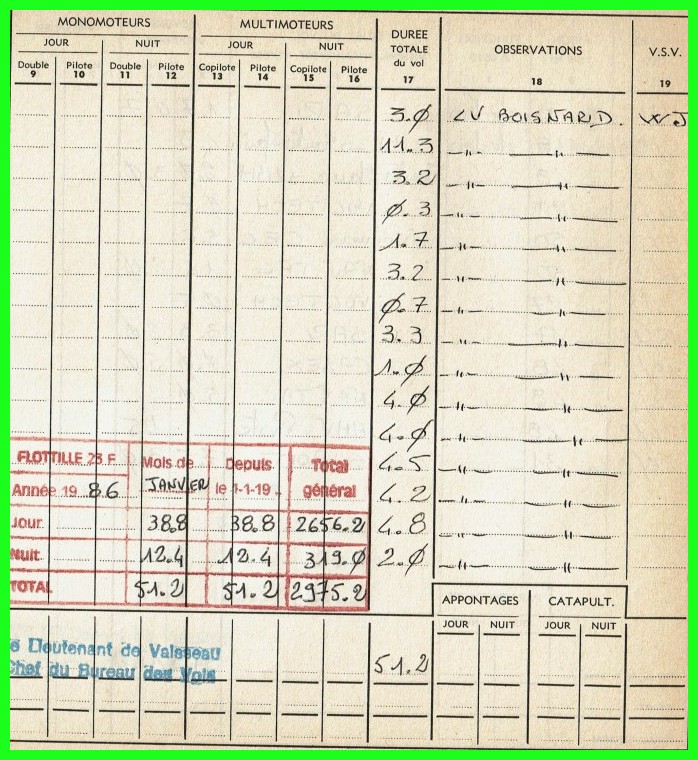 MONOMOTEURS MULTIMOTEURS DUREE TOTALE du vol OBSERVATIONS V.S.V.
JOUR NUIT JOUR NUIT
Double 9 Pilote 10 Double 11 Pilote 12 Copilote 13 Pilote 14 Copilote 15 Pilote 16 17 18 19
3.Ø LV BOISNARD. WJ
11.3 —"— —"—
3.2 —"— —"—
Ø.3 —"— —"—
1.7 —"— —"—
3.2 —"— —"—
Ø.7 —"— —"—
3.3 —"— —"—
1.Ø —"— —"—
4.Ø —"— —"—
4.Ø —"— —"—
FLOTTILLE 23 F Mois de JANVIER Depuis le 1-1-19 Total général 4.5 —"— —"—
Année 19 86 4.2 —"— —"—
Jour. 38.8 38.8 2656.2 4.8 —"— —"—
Nuit. 12.4 12.4 319.Ø 2.Ø —"— —"—
TOTAL 51.2 51.2 2975.2
APPONTAGES CATAPULT.
JOUR NUIT JOUR NUIT
Lieutenant de Vaisseau
Chef du Bureau des Vols 51.2